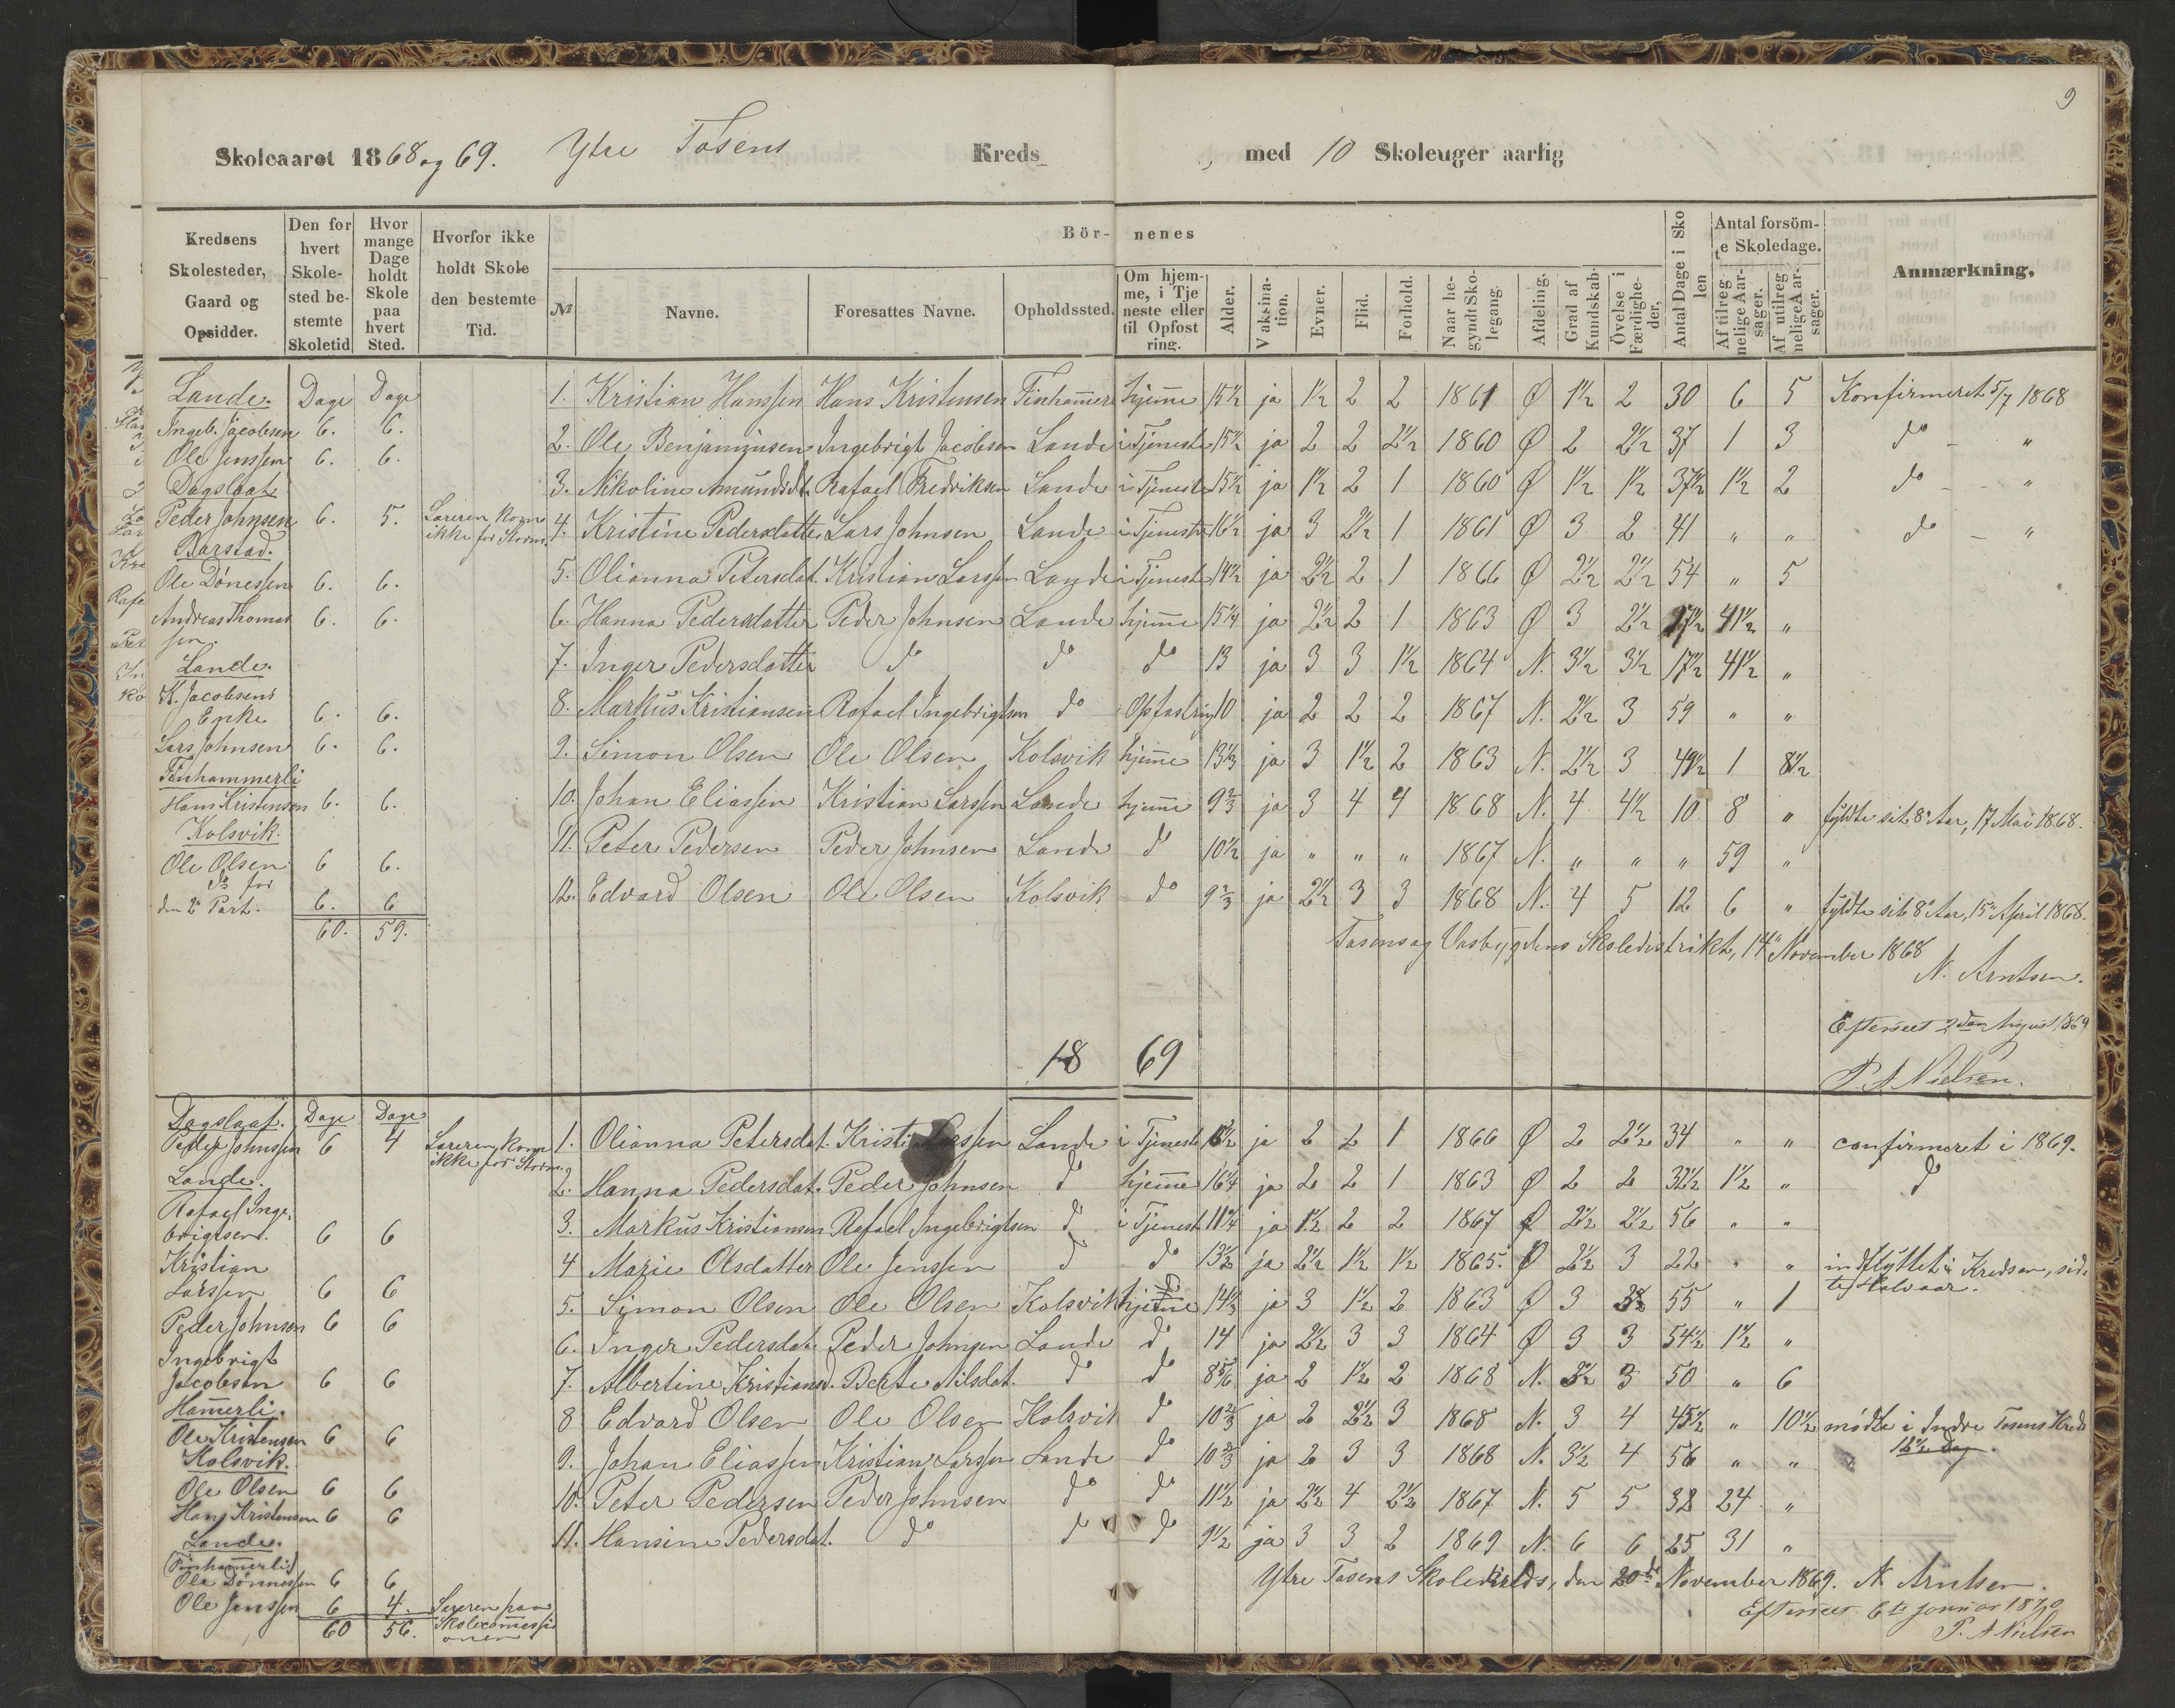 9
Skoleaaret 1868 og 69. Ytre Tosens Kreds, med 10 Skoleuger aarlig
Kredsens Skolesteder, Gaard og Opsidder. | Den for hvert Skolested bestemte Skoletid | Hvor mange Dage holdt Skole paa hvert Sted. | Hvorfor ikke holdt Skole den bestemte Tid. | Bör- nenes
№ | Navne. | Foresattes Navne. | Opholdssted. | Om hjemme, i Tjeneste eller til Opfostring. | Alder. | Vaksination. | Evner. | Flid. | Forhold. | Naar begyndt Skolegang. | Afdeling. | Grad af Kundskab | Övelse i Færdigheder. | Antal Dage i Skolen | Antal forsömte Skoledage. | Af tilregnelige Aarsager. | Af utilregnelige Aarsager. | Anmærkning.
Lande. Dage Dage
Ingeb. Jacobsen 6. 6.
Ole Jenssen 6. 6.
Dagslaat
Peder Johnsen 6. 5. Læreren kom ikke for Storm.
Barstad.
Ole Dönessen 6. 6.
Andreas Thomassen. 6. 6.
Lande.
K. Jacobsens Enke 6. 6.
Lars Johnsen 6. 6.
Finhammerli
Hans Kristensen 6. 6.
Kolsvik.
Ole Olsen 6 6.
Do for den 2. Part. 6. 6
60. 59.
1. Kristian Hanssen Hans Kristensen Finhamerli hjeme 15½ ja 1½ 2 2 1861 Ø 1½ 2 30 6 5 Konfirmeret 5/7 1868
2. Ole Benjaminsen Ingebrigt Jacobsen Lande i Tjeneste 15½ ja 2 2 2½ 1860 Ø 2 2½ 37 1 3 do - "
3. Nikoline Amundsdt. Rafael Fredriksen Lande i Tjeneste 15½ ja 1½ 2 1 1860 Ø 1½ 1½ 37½ 1½ 2 do - "
4. Kristine Pedersdatter Lars Johnsen Lande i Tjeneste 16½ ja 3 2½ 1 1861 Ø 3 2 41 " " do - "
5. Olianna Petersdat. Kristian Larssen Lande i Tjeneste 14½ ja 2½ 2 1 1866 Ø 2½ 2½ 54 " 5
6. Hanna Pedersdatter Peder Johnsen Lande hjeme 15¼ ja 2½ 2 1 1863 Ø 3 2½ 17½ 41½ "
7. Inger Pedersdatter do do do 13 ja 3 3 1½ 1864 N. 3½ 3½ 17½ 41½ "
8. Markus Kristiansen Rafael Ingebrigtsen do Opfostring 10 ja 2 2 2 1867 N. 2½ 3 59 " "
9. Simon Olsen Ole Olsen Kolsvik hjeme 13⅓ ja 3 1½ 2 1863 N. 2½ 3 49½ 1 8½
10. Johan Eliassen Kristian Larssen Lande hjeme 9⅔ ja 3 4 4 1868 N. 4 4½ 10 8 " fyldte sit 8de Aar, 17 Mai 1868.
11. Peter Pedersen Peder Johnsen Lande do 10½ ja " " " 1867 N. " " " 59 "
12. Edvard Olsen Ole Olsen Kolsvik do 9⅔ ja 2½ 3 3 1868 N. 4 5 12 6 " fyldte sit 8de Aar, 15de April 1868.
Tosens og Vasbygdens Skoledistrikt, 14de November 1868
N. Arntsen.
Efterseet 2den August 1869
P. A Nielsen.
18 69
Dagslaat. Dage Dage
Peder Johnssen 6 4 Læreren kom ikke for Storm.
Lande.
Rafael Ingebrigtsen. 6 6
Kristian Larssen 6 6
Peder Johnsen 6 6
Ingebrigt Jacobsen 6 6
Hamerli.
Ole Kristensen 6 6
Kolsvik.
Ole Olsen 6 6
Hans Kristensen 6 6
Lande.
(Finhamerli)
Ole Dönnessen 6 6
Ole Jenssen 6 4. Læreren paa Skolecomessionen
60 56.
1. Olianna Petersdat. Kristian Larssen Lande i Tjeneste ja 2 2 1 1866 Ø 2 2½ 34 " " confirmeret i 1869.
2. Hanna Pedersdat. Peder Johnsen do hjeme 16¼ ja 2 2 1 1863 Ø 2 2 32½ 1½ " do
3. Markus Kristiansen Rafael Ingebrigtsen do i Tjenest 11¼ ja 1½ 2 2 1867 Ø 2½ 2½ 56 " "
4 Marie Olsdatter Ole Jenssen do do 13½ ja 2½ 1½ 1½ 1865. Ø 2½ 3 22 " " indflyttet i Kredsen, sidste Halvaar.
5. Simon Olsen Ole Olsen Kolsvik hjeme 14⅓ ja 3 1½ 2 1863 Ø 3 55 " 1
6. Inger Pedersdat. Peder Johnsen Lande do 14 ja 2½ 3 3 1864 Ø 3 3 54½ 1½ "
7. Albertine Kristiansd. Berte Nilsdat. do do 8⅚ ja 2 1½ 2 1868 N. 3½ 3 50 " 6
8 Edvard Olsen Ole Olsen Kolsvik do 10⅔ ja 2 2½ 3 1868 N. 3 4 45½ " 10½ mødte i Indre Tosens Kreds 12½ Dag.
9. Johan Eliassen Kristian Larssen Lande do 10⅔ ja 2 3 3 1868 N. 3½ 4 56 " "
10. Peter Pedersen Peder Johnsen do do 11½ ja 2½ 4 2½ 1867 N. 5 5 32 24 "
11. Hansine Pedersdat. do do do 9½ ja 3 3 2 1869 N. 6 6 25 31 "
Ytre Tosens Skolekreds, den 20de November 1869. N. Arntsen.
Efterseet 6te Januar 1870
P. A Nielsen